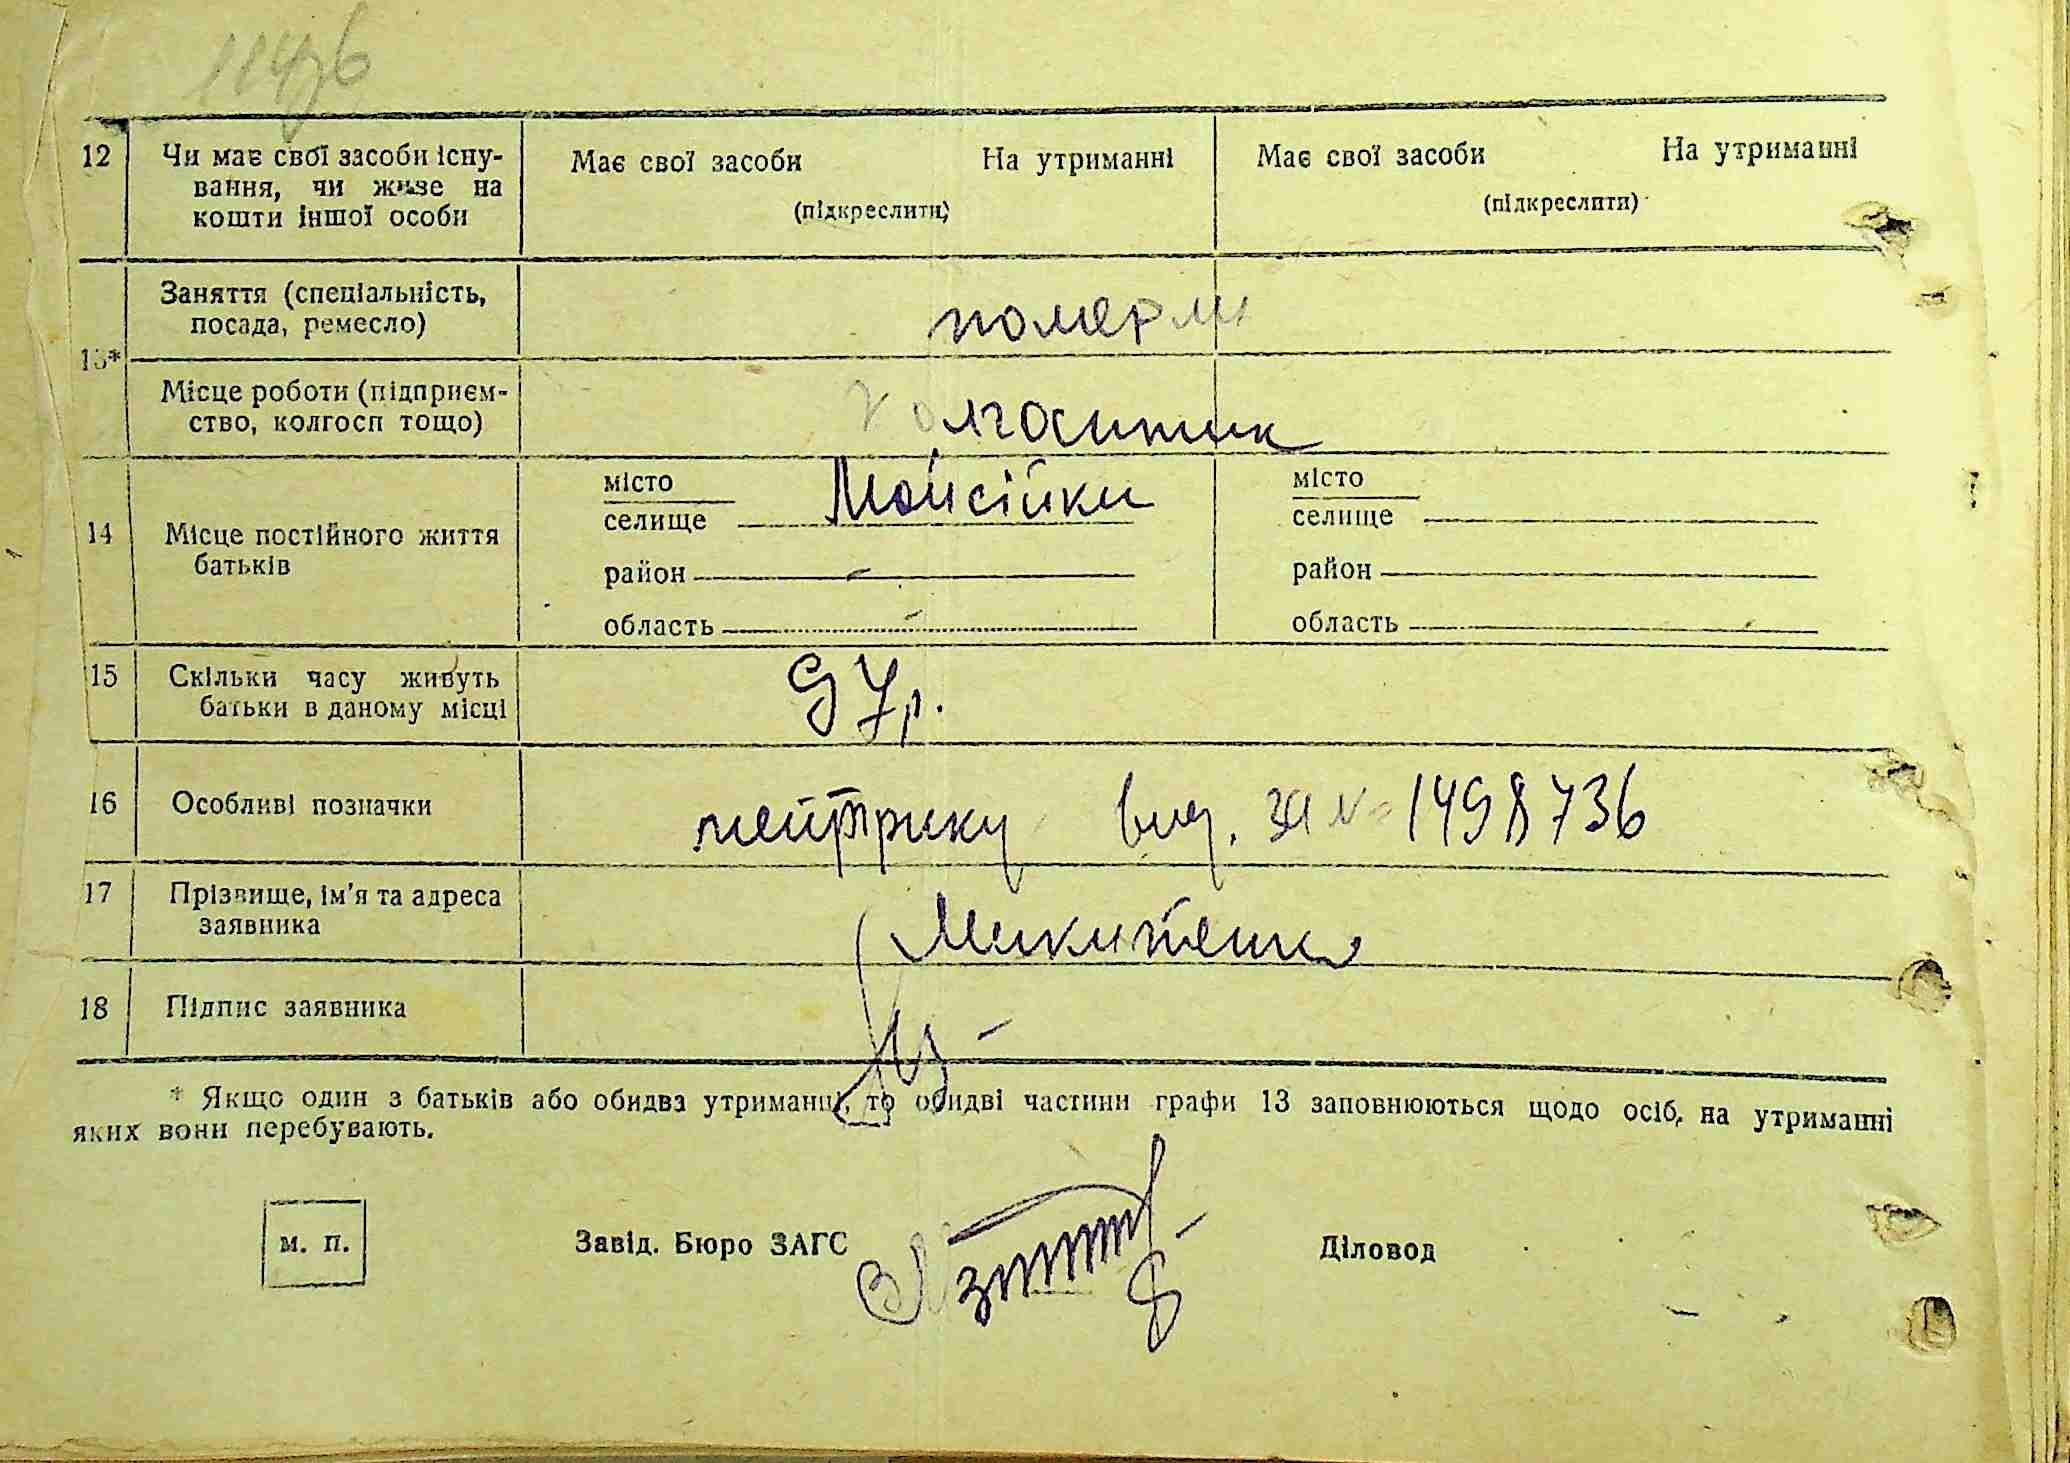 12 Чи має свої засоби існу-
вання, чи живе на
кошти іншої особи
Має свої засоби На утриманні
(підкреслити)
Має свої засоби На утриманні
(підкреслити)
13*
Заняття (спеціальність,
посада, ремесло)
померли
Місце роботи (підприєм-
ство, колгосп тощо)
колгоспник
14 Місце постійного життя
батьків
місто
селище Мойсійки
район
область
місто
селище
район
область
15 Скільки часу живуть
батьки в даному місці
97р.
16 Особливі позначки
метрику вид. за № 1498736
17 Прізвище, ім'я та адреса
заявника
Микитенко
18 Підпис заявника
* Якщо один з батьків або обидва утриманці, то обидві частини графи 13 заповнюються щодо осіб, на утриманні
яких вони перебувають.
м. п.
Завід. Бюро ЗАГС
Діловод